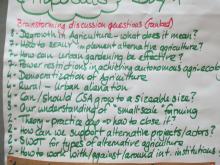 Brainstorming discussion questions (ranked)
Degrowth in Agriculture - what does it mean?
How to really implement alternative agriculture?
How can urban gardening be effective?
Power restrictions inhibiting autonomous agri-eco
Democratization of Agriculture
Rural - urban alienation
Can/should CSA grow to a sizeable size?
Our understanding of small scale farming
Theory-practice gap → how to close it?
How can we support alternative projects/actors?
SWOT for types of alternative agriculture
How to work (with)/against/around int. institutions